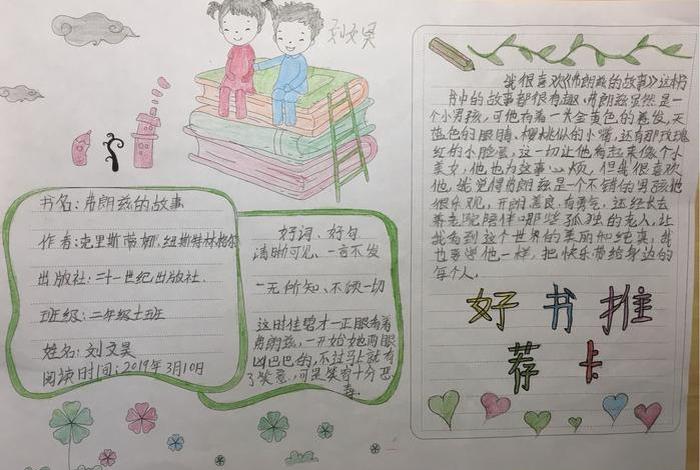 刘文昊
书名：弗朗兹的故事
作者：克里斯蒂娜.纽斯特林格尔
出版社：二十一世纪出版社.
班级：二年级十班
姓名：刘文昊
阅读时间：2019年3月10日
好词、好句
清晰可见、一言不发
一无所知、不顾一切
这时佳碧才一正眼看着
弗朗兹，一开始她两眼
凶巴巴的，不过马上就有
了笑意，可是笑容十分恶
毒.
我很喜欢《弗朗兹的故事》这本书
书中的故事都很有趣.弗朗兹虽然是一
个小男孩，可他有着一头金黄色的卷发，天
蓝色的眼睛、樱桃似的小嘴，还有那玫瑰
红的小脸蛋，这一切让他看起来像个小
美女，他也为这事心烦，但我很喜欢
他，我觉得弗朗兹是一个不错的男孩他
很乐观，开朗善良.有勇气，还经长去
养老院陪伴哪些孤独的老人，让
我看到这个世界的美丽和纯真，我
也要学他一样，把快乐带给身边的
每个人.
好书推
荐卡